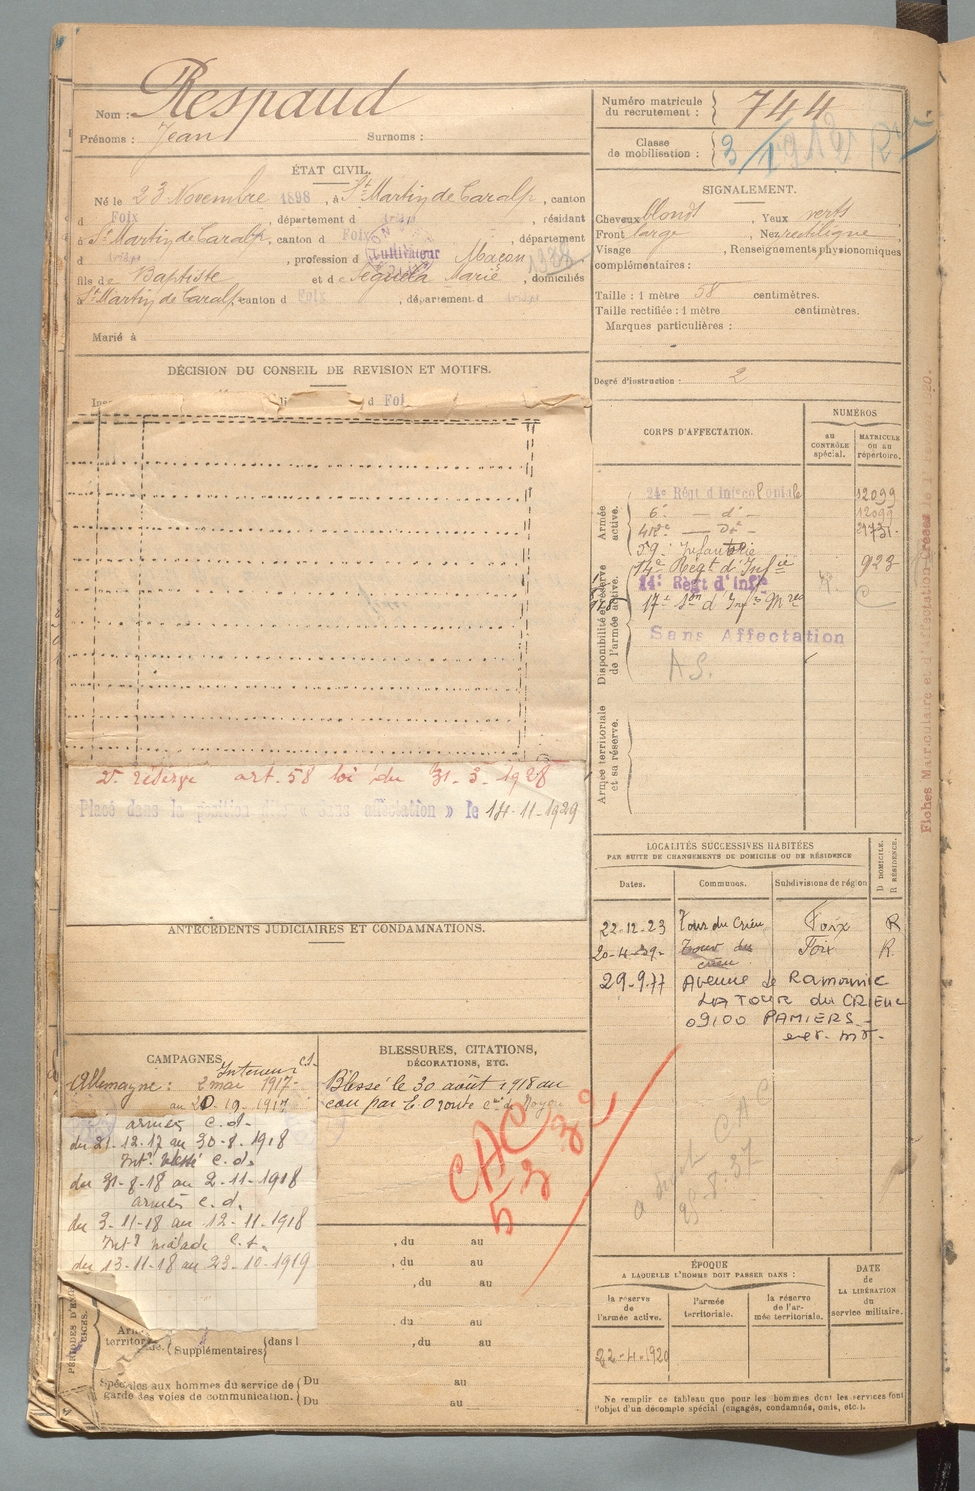 Nom : Respaud
Prénoms : Jean Surnoms :
Numéro matricule
du recrutement : 744
Classe
de mobilisation : 3/1912
ÉTAT CIVIL.
Né le 23 Novembre 1898, à St Martin de Caralp, canton
d Foix, département d Ariège, résidant
à St Martin de Caralp, canton d Foix, département
d Ariège, profession d Cultivateur Maçon
fils de Baptiste et de Séguéla Marie, domiciliés
St Martin de Caralp canton d Foix, département d Ariège
Marié à
SIGNALEMENT.
Cheveux blonds, Yeux verts
Front large, Nez rectiligne
Visage , Renseignements physionomiques
complémentaires :
Taille : 1 mètre 58 centimètres.
Taille rectifiée : 1 mètre centimètres.
Marques particulières :
Degré d'instruction : 2
DÉCISION DU CONSEIL DE REVISION ET MOTIFS.
d Foi
2e réserve art. 58 loi du 31-3-1928
Placé dans la position dite « sans affectation » le 14-11-1929
CORPS D'AFFECTATION.
NUMÉROS
au
CONTRÔLE
spécial.
MATRICULE
ou au
répertoire.
Armée
active.
24e Régt d'Inf Coloniale 12099
6e — d° — 12099
— d° —
59e Infanterie
Disponibilité et réserve
de l'armée active.
14e Régt d'Infie 923
14e Régt d'Infie
17e Son d'Inf
Sans Affectation
A S.
Armée territoriale
et sa réserve.
Fiches Matriculaire et d'Affectation
LOCALITÉS SUCCESSIVES HABITÉES
PAR SUITE DE CHANGEMENTS DE DOMICILE OU DE RÉSIDENCE
Dates. Communes. Subdivisions de région
D DOMICILE.
R RÉSIDENCE.
22-12-23 Tour du Crieu Foix R
20-4-29 Tour du Crieu Foix R.
29-9-77 Avenue de
LA TOUR du CRIEU
09100 PAMIERS
ANTÉCÉDENTS JUDICIAIRES ET CONDAMNATIONS.
CAMPAGNES.
Intérieur C.S.
Allemagne : 2 mai 1917-
au 20-12-1917
armées C.d.
du 21-12-17 au 30-8-1918
Intr blessé C.d.
du 31-8-18 au 2-11-1918
armées C.d.
du 3-11-18 au 12-11-1918
Intr malade C.s.
du 13-11-18 au 23-10-1919
BLESSURES, CITATIONS,
DÉCORATIONS, ETC.
Blessé le 30 août 1918 au
cou par E.O route de Noyon
CAC
, du au
, du au
, du au
, du au
, du au
territoriale. Supplémentaires dans l
Spéciales aux hommes du service de
garde des voies de communication.
Du au
Du au
ÉPOQUE
A LAQUELLE L'HOMME DOIT PASSER DANS :
la réserve
de
l'armée active.
l'armée
territoriale.
la réserve
de l'ar-
mée territoriale.
DATE
de
LA LIBÉRATION
du
service militaire.
22-4-1920
Ne remplir ce tableau que pour les hommes dont les services font
l'objet d'un décompte spécial (engagés, condamnés, omis, etc.).